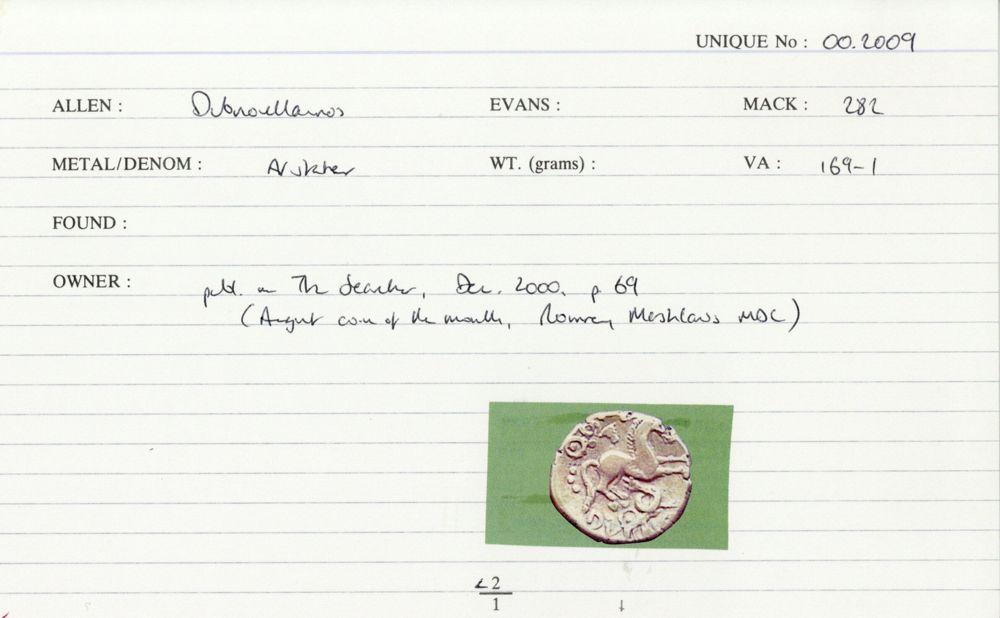 UNIQUE No : 00.2009
ALLEN : Dubnovellaunos EVANS : MACK : 282
METAL/DENOM : AV stater WT. (grams) : VA : 169-1
FOUND :
OWNER : publ. in The Searcher, Dec. 2000, p 69
(August coin of the month, Romney Marshlaws MDC)
2
1